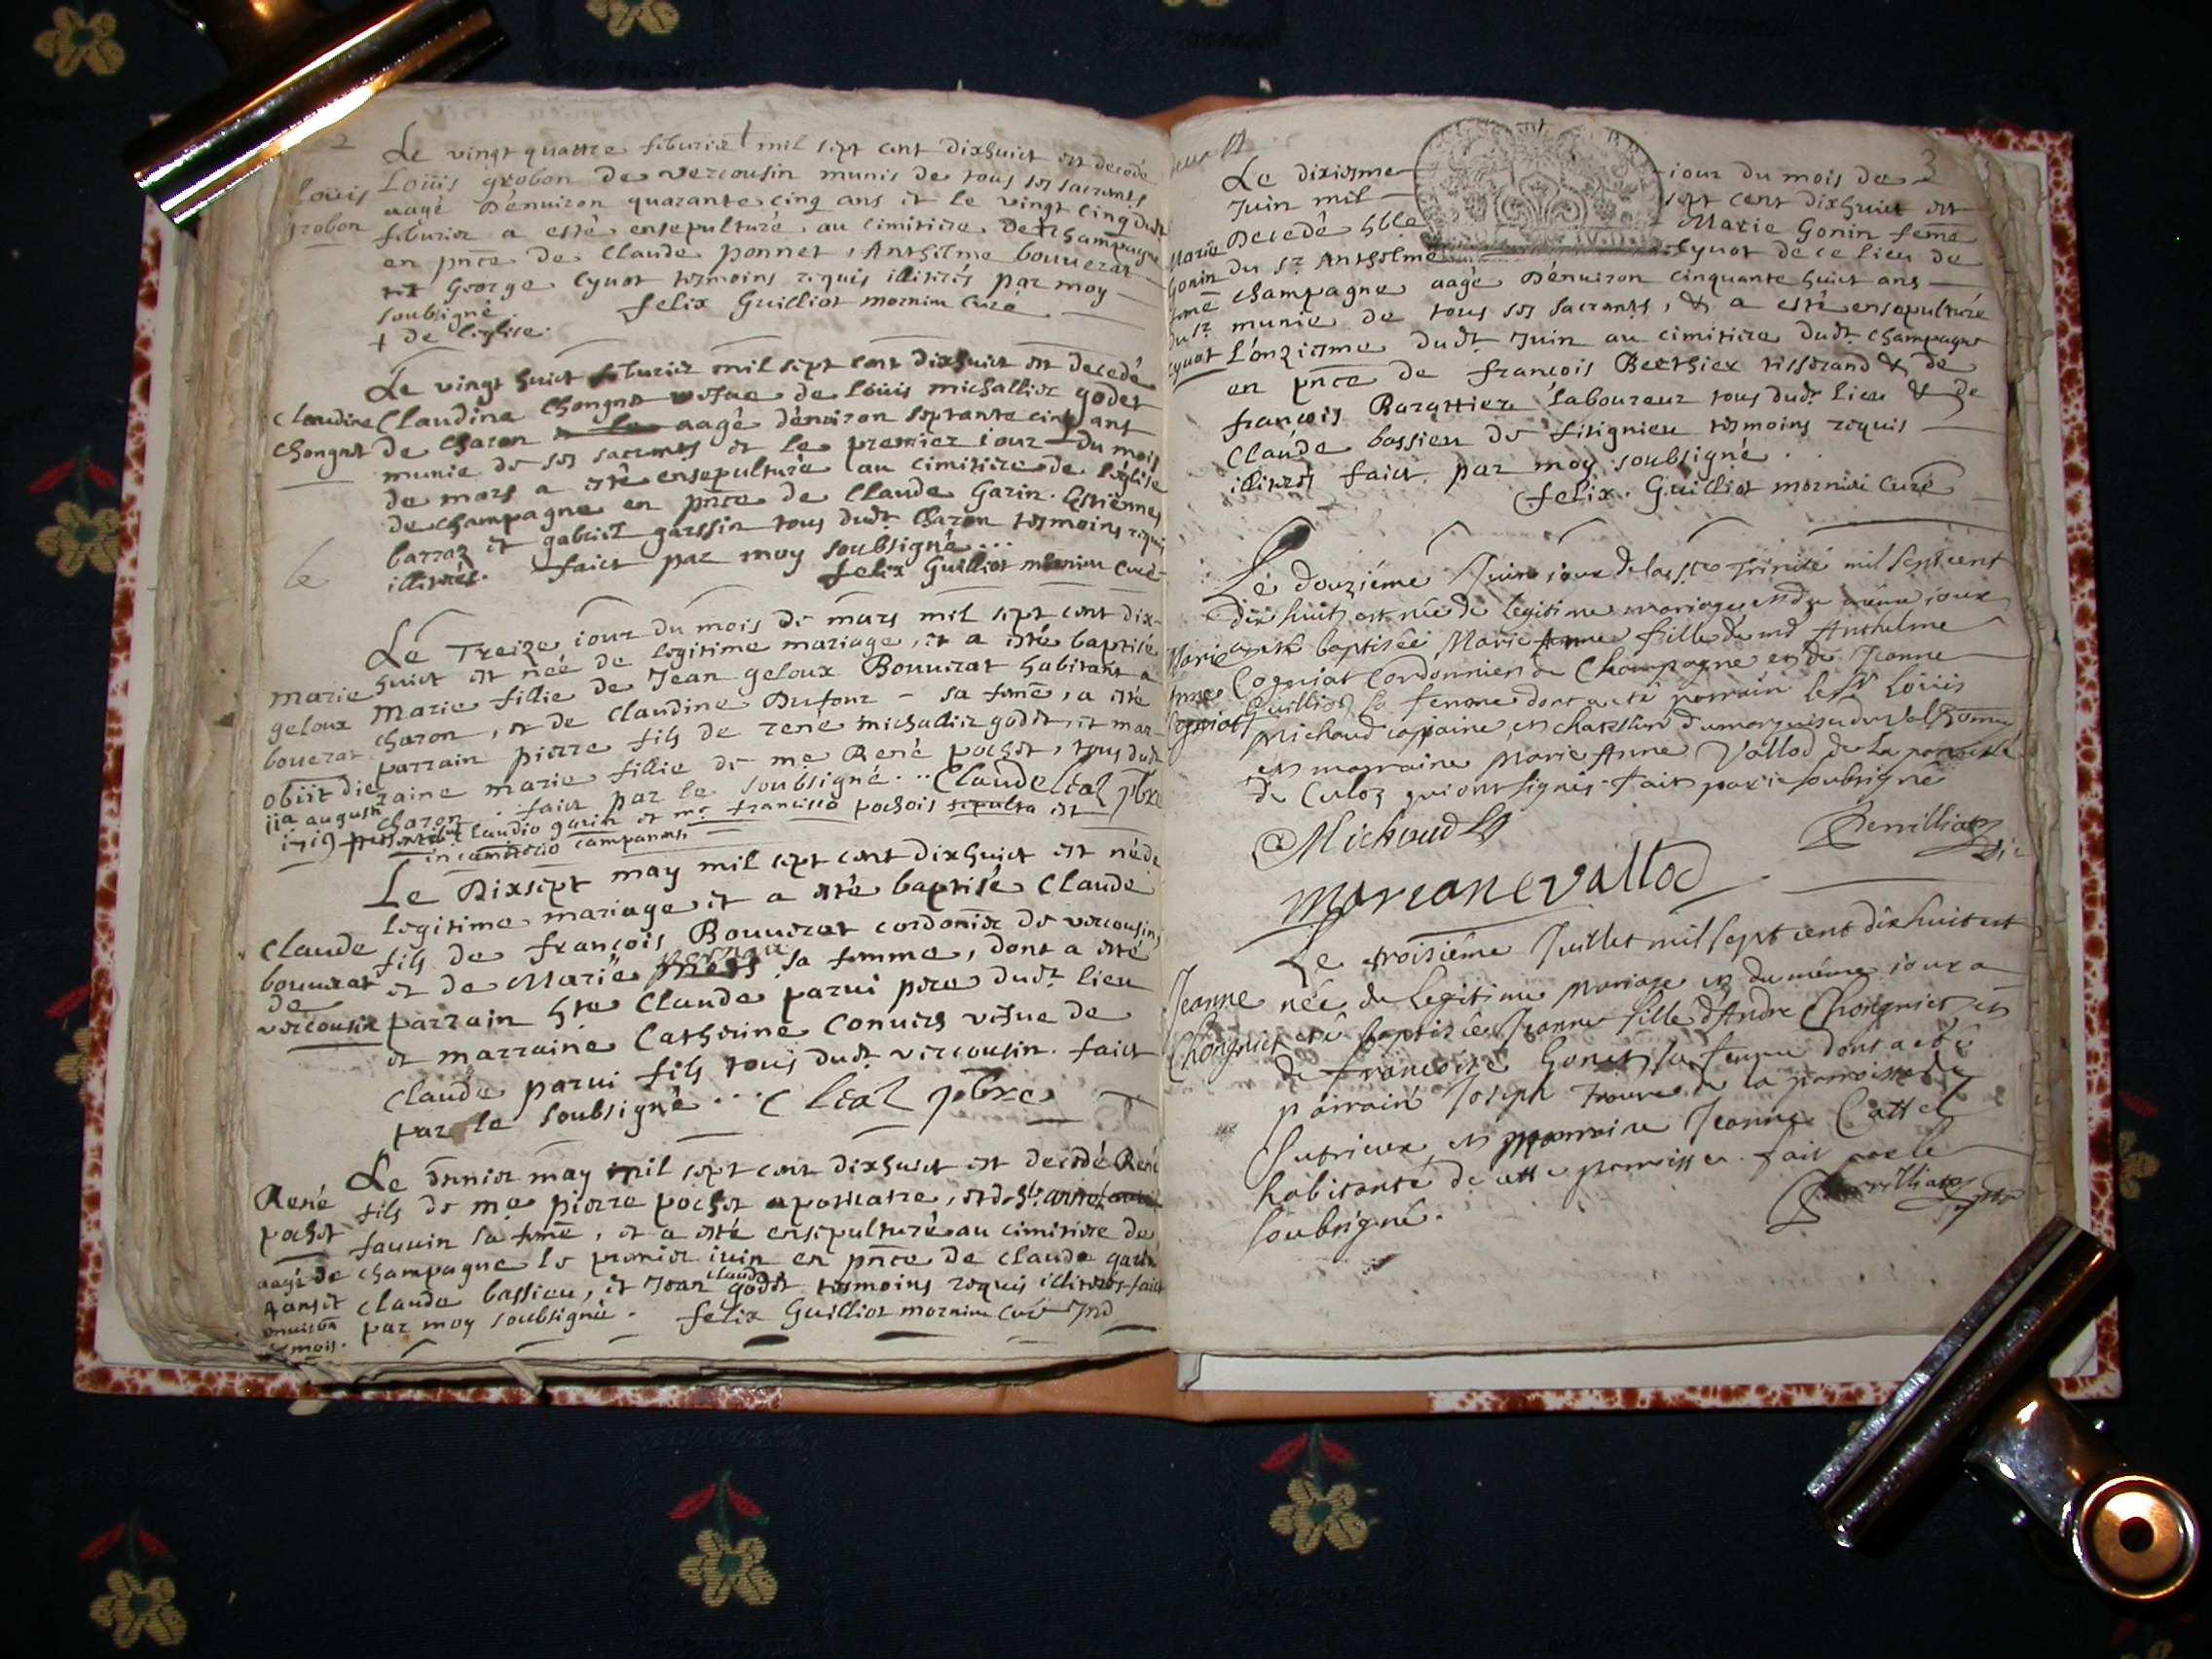 2
Le vingt quattre feburier † mil sept cent dixhuict est decedé
Loüis grobon de vercousin munis de tous ses sacremts
Loüis
grobon
aagé d'enuiron quarante cinq ans et le vingt cinq dudt
feburier a esté ensepulturé au cimitiere de champagne
en pnce de Claude ponnet, Anthelme bouuerat
et George Cyuot tesmoins requis illiterés par moy
soubsigné. felix Guilliot mornieu Curé
† de l'eglise.
Le vingt huict feburier mil sept cent dixhuict est decedé
Claudine Chongnet vefue de Loüis michallier godet
Claudine
Chongnet
de Charon aagé d'enuiron septante cinq ans
munie de ses sacremts et le premier iour du mois
de mars a esté ensepulturé au cimitiere de l'église
de champagne en pnce de Claude Garin. Estienne
barraz et gabriel garssin tous dudt Charon tesmoins requis
illiterés. faict par moy soubsigné...
felix Guilliot mornieu Curé
Le Treize iour du mois de mars mil sept cent dix-
huict est néé de legitime mariage, et a esté baptisé
marie
geloux
bouerat
Marie fillie de Jean geloux Bouuerat habitant a
charon, et de Claudine Dufour - sa feme, a esté
parrain pierre fils de rené michallier godet, et mar-
raine marie fillie de me René pochet, tous dudt
charon. faict par le soubsigné... Claude Leal pbre
obiit die
11a augusti
1719 presentibus Claudio garin et me francisco pochois sepulta est
in cemiterio campanensi
Le Dixsept may mil sept cent dixhuict est né de
legitime mariage et a esté baptisé Claude
Claude
bouuerat
de
vercousin
fils de françois Bouuerat cordonier de vercousin,
et de Marie sa femme, dont a esté
parrain hte Claude parui pere dudt lieu
et marraine Catherine Conuers vefue de
Claude parui fils tous dudt vercousin. faict
par le soubsigné... C Leal pbre
Le dernier may mil sept cent dixhuict est decedé René
René
pochet
fils de me pierre pochet apoticaire, et de
fauuin sa feme, et a esté ensepulturé au cimitiere de
champagne le premier iuin en pnce de claude garin
aagé de
4 ans et
enuiron
mois.
claude bassieu, et Jean claude godet tesmoins requis illiterés faict
par moy soubsigné. felix Guilliot mornieu Curé
3
Le dixiesme iour du mois de
Juin mil sept cent dixhuict est
Decedé hble Marie Gonin feme
Marie
Gonin
feme
du sr
cyuot
du sr. Anthelme Cyuot de ce lieu de
champagne aagé d'enuiron cinquante huict ans
munie de tous ses sacremts, & a esté ensepulturé
l'onziesme dudt Juin au cimitiere dudt champagne
en pnce de francois Berthier tisserand & de
francois Barattier laboureur tous dudt lieu & de
Claude bassieu de fitignieu tesmoins requis
illiterés faict par moy soubsigné.
felix. Guilliot mornieu Curé
Le douziéme Juin iour de la ste Trinité mil sept cent
dix huit est née de legitime mariage et du même iour
a esté baptisée Marie Anne fille de md Anthelme
Marie
Anne
Cogniat
Cogniat Cordonnier de Champagne et de Jeanne
Guilliot sa femme dont a eté parrain le Sr Loüis
Michaud capitaine et chatelain du marquisat du Valromey
et marraine Marie Anne Vallod de la paroisse
de Culoz qui ont signés. fait par ie soubsigné
Michaud
mariane vallod
Le troisiême Juillet mil sept cent dix huit est
Jeanne
Chongnier
née de legitime mariage et du même iour a
eté baptisée Jeanne fille d'Andre Chongnier et
de francoise Gonet sa femme dont a eté
parrain Joseph de la paroisse de
Sutrieux et marraine Jeanne Cattel
habitante de cette paroisse. fait par le
soubsigné.